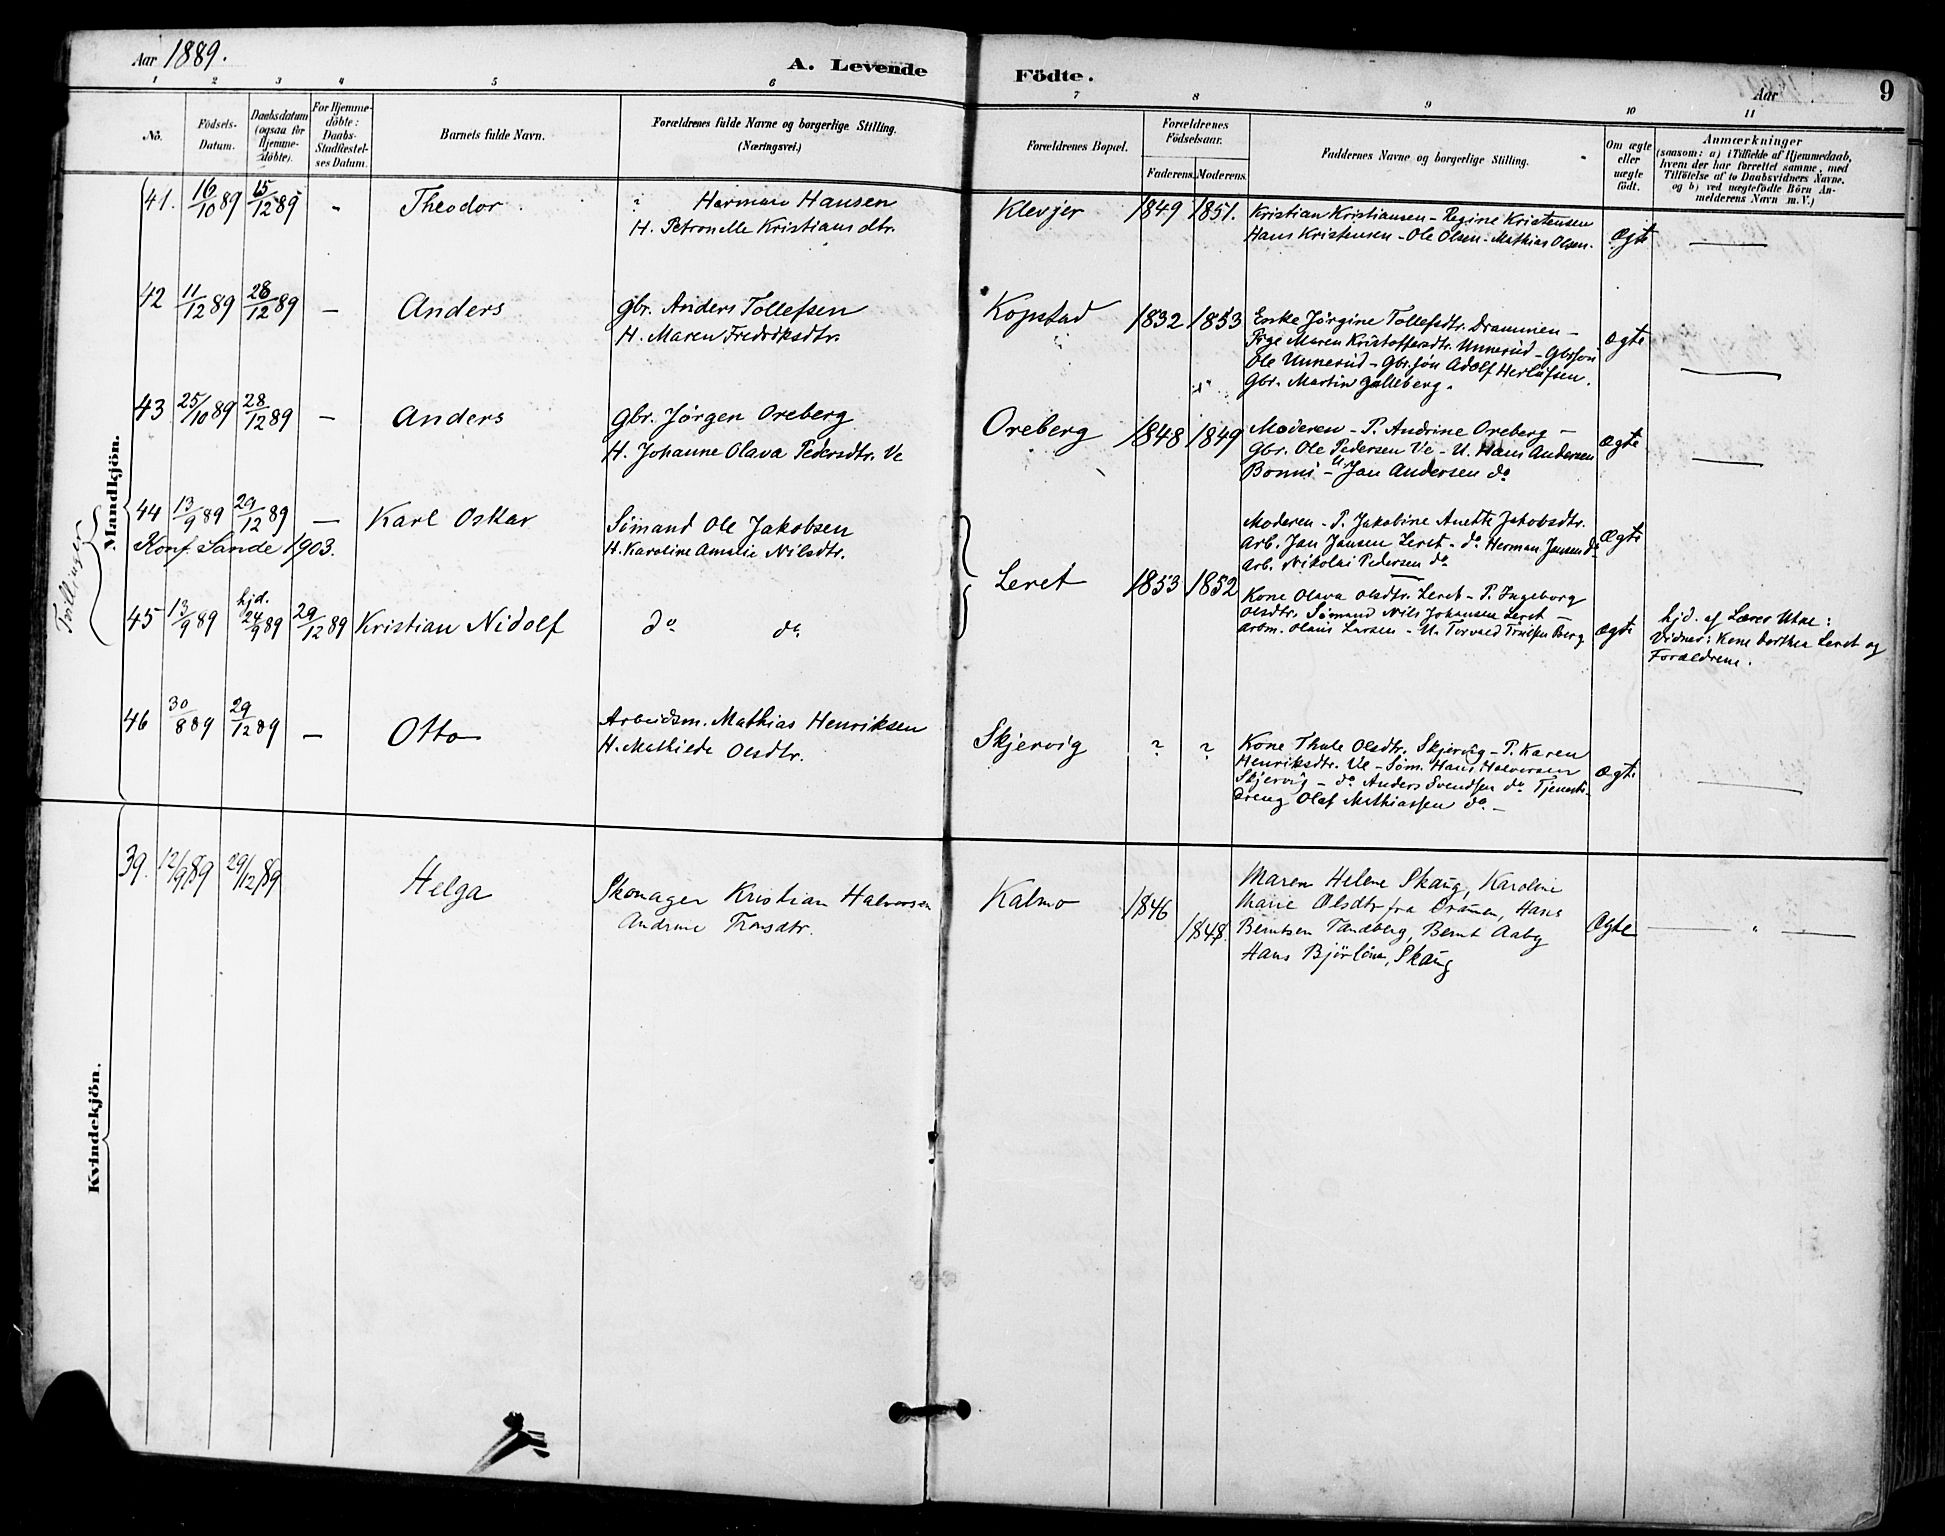 Aar 1889.
A. Levende
Födte.
Aar
9
1 2 3 4 5 6 7 8 9 10 11
No.
Födsels-
Datum.
Daabsdatum
(ogsaa for
Hjemme-
döbte).
For Hjemme-
döbte:
Daabs-
Stadfæstel-
ses Datum.
Barnets fulde Navn.
Forældrenes fulde Navne og borgerlige Stilling.
(Næringsvei.)
Forældrenes Bopæl.
Forældrenes
Födselsaar.
Faderens. Moderens.
Faddernes Navne og borgerlige Stilling.
Om ægte
eller
uægte
födt.
Anmærkninger
(saasom: a) i Tilfælde af Hjemmedaab,
hvem der har forrettet samme, med
Tilföielse af to Daabsvidners Navne,
og b) ved uægtefödte Börn An-
melderens Navn m. V.)
Mandkjön.
41. 16/10 89 15/12 89 - Theodor
? Herman Hansen
H. Petronelle Kristiansdtr.
Klevjer 1849 1851.
Kristian Kristiansen - Regine Kristensen
Hans Kristensen - Ole Olsen - Mathias Olsen.
Ægte
42 11/12 89 28/12 89 - Anders
Gbr. Anders Tollefsen
H. Maren Fredriksdtr.
Kopstad 1832 1853
Enke Jörgine Tollefsdtr. Drammen -
Pige Maren Kristoffersdtr. Unnerud - Gbrsön
Ole Unnerud - Gbr.sön Adolf Herlufsen.
Gbr. Martin Galleberg.
Ægte
43 25/10 89 28/12 89 - Anders
Gbr. Jörgen Oreberg
H. Johanne Olava Pedersdtr. Ve
Oreberg 1848 1849
Moderen - P. Andrine Oreberg -
Gbr. Ole Pedersen Ve - U. Hans Andersen
Bonni - U. Jan Andersen do
Ægte
Tvillinger
44 13/9 89 29/12 89 - Karl Oskar
Konf. Sande 1903.
Sömand Ole Jakobsen
H. Karoline Amalie Nilsdtr.
Leret 1853 1852
Moderen - P. Jakobine Anette Jakobsdtr.
Arb. Jan Jansen Leret - do Herman Jansen do
Arb. Nikolai Pedersen do
Ægte
45 13/9 89 hjd. 24/9 89 29/12 89 Kristian Nidolf
do do
Kone Olava Olsdtr. Leret - P. Ingeborg
Olsdtr. Sömand Nils Johansen Leret -
Arbm. Olaus Larsen - U. Torvald Trulsen Berg
Ægte
hjd. af Lærer Utne:
Vidner: Kone Dorthea Leret og
Forældrene.
46 30/8 89 29/12 89 - Otto
Arbeidsm. Mathias Henriksen
H. Mathilde Olsdtr.
Skjervig ? ?
Kone Thale Olsdtr. Skjervig - P. Karen
Henriksdtr. Ve - Söm. Hans Halvorsen
Skjervig - do Anders Svendsen do Tjeneste-
dreng Olaf Mathiassen do -
Ægte
Kvindekjön.
39. 12/9 89 29/12 89 Helga
Skomager Kristian Halvorsen
Andrine Tronsdtr.
Kalmo 1846 1848.
Maren Helene Skaug, Karoline
Marie Olsdtr fra Dramen, Hans
Berntsen Tandberg, Bernt Aaby
Hans Skaug
Ægte